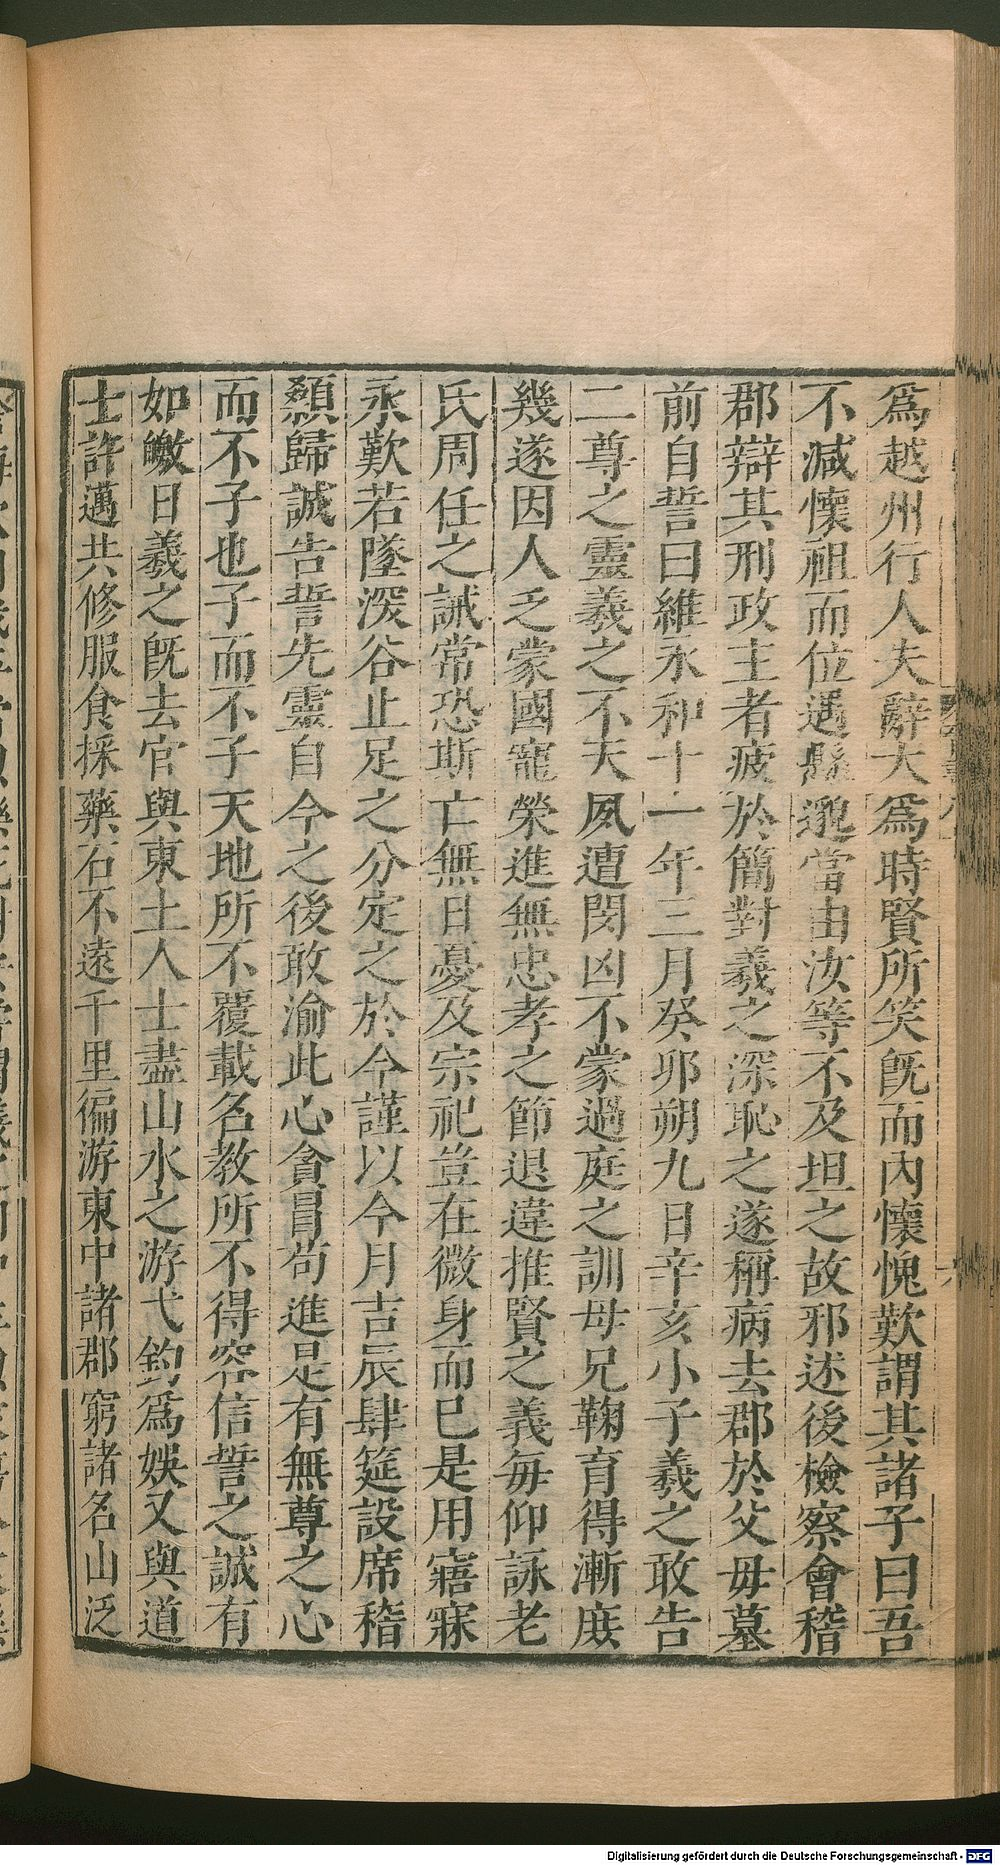 爲越州行人夫辭大爲時賢所笑旣而內懷愧歎謂其諸子曰吾
不減懷祖而位遇懸邈當由汝等不及坦之故邪述後檢察會稽
郡辯其刑政主者疲於簡對羲之深恥之遂稱病去郡於父毋墓
前自誓曰維永和十一年三月癸卯朔九日辛亥小子羲之敢告
二尊之靈羲之不天夙遭閔凶不蒙過庭之訓母兄鞠育得漸庶
幾遂因人乏蒙國寵榮進無忠孝之節退違推賢之義每仰詠老
氏周任之誡常恐斯亡無日憂及宗祀豈在微身而已是用寤寐
永歎若墜深谷止足之分定之於今謹以今月吉辰肆筵設席稽
顙歸誠告誓先靈自今之後敢渝此心貪冒苟進是有無尊之心
而不子也子而不子天地所不覆載名教所不得容信誓之誠有
如皦日羲之旣去官與東土人士盡山水之游弋釣爲娛又與道
士許邁共修服食採藥石不遠千里徧游東中諸郡窮諸名山泛
Digitalisierung gefördert durch die Deutsche Forschungsgemeinschaft - DFG